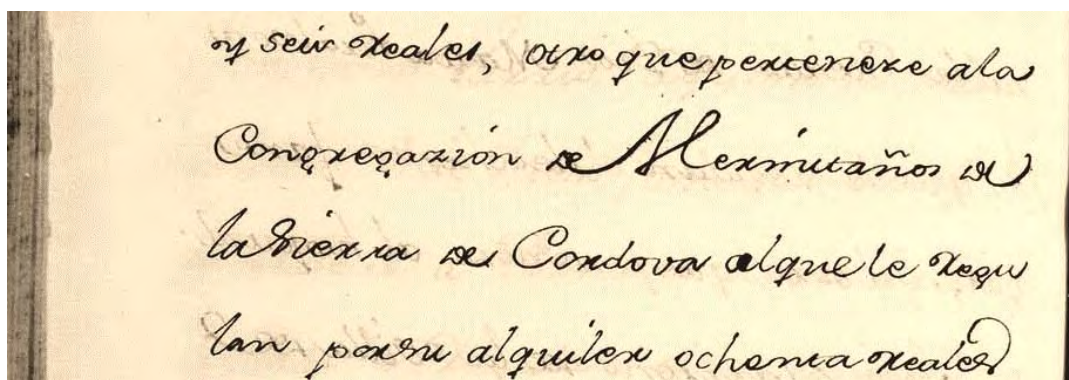 y seis reales, otro que perteneze ala
Congregazión de Hermitaños de
la Sierra de Cordova alque le regu
lan por su alquiler ochenta reales